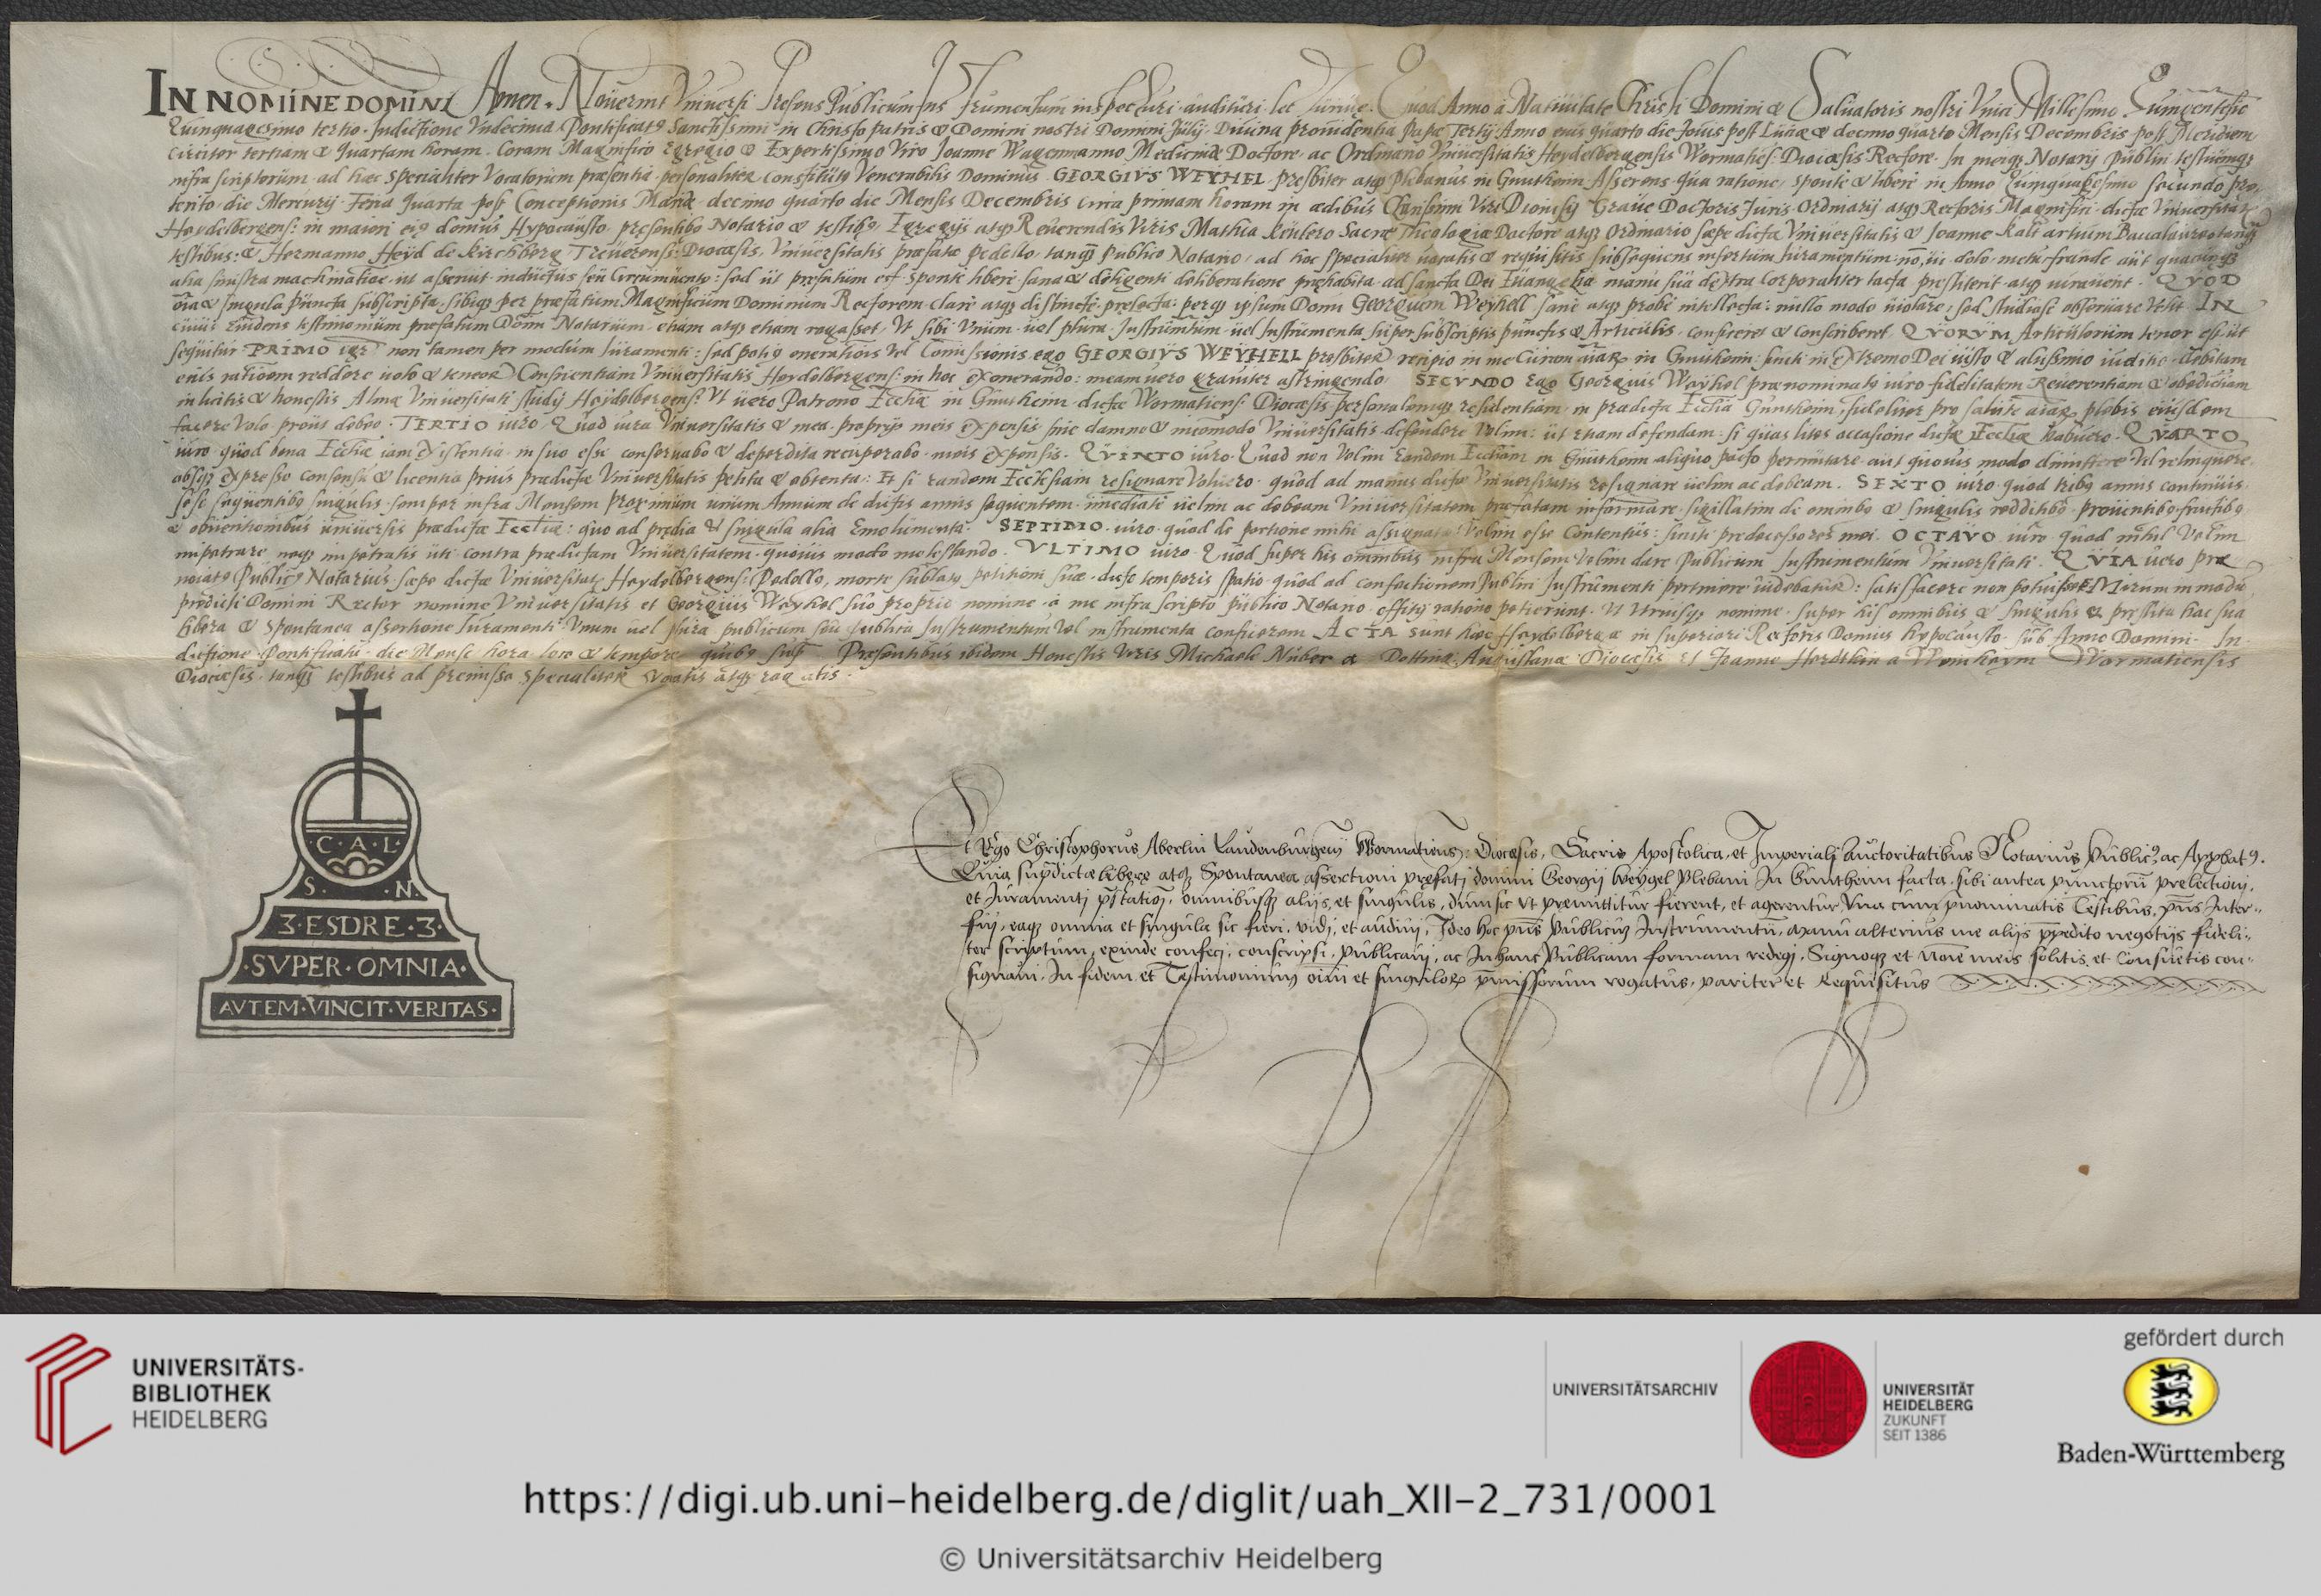 IN NOMINE DOMINI Amen. Noverint Vniversi Presens Publicum Instrumentum inspecturi, audituri Quod Anno à Natiuitate Christi Domini & Saluatoris nostri Vnici Millesimo Quingentesimo
Quinquagesimo tertio. Indictione Vndecima. Pontificatꝰ Sanctissimi in Christo patris & Domini nostri Domini Julij Diuina prouidentia Papæ Tertij Anno eius quarto die Jouis post Luciæ & decimo quarto Mensis Decembris post Meridiem
circiter tertiam & quartam horam. Coram Magnifico Egregio & Expertissimo Viro Joanne Wagenmanno Medicinæ Doctore ac Ordinario Vniuersitatis Heydelbergensis Wormatieñ: Diocæsis Rectore. In meiqꝫ Notarij publici testiumqꝫ
infra scriptorum ad hæc specialiter Vocatorum præsentia personaliter constitutꝰ Venerabilis Dominus GEORGIVS WEYHEL presbiter atqꝫ Plebanus in Guntheim Asserens qua ratione, sponte & liberè in Anno Quinquagesimo secundo præ
terito die Mercurij Feria quarta post Conceptionis Mariæ decimo quarto die Mensis Decembris circa primam horam in ædibus Clarissimi Viri Dionisij Graue Doctoris Juris Ordinarij atqꝫ Rectoris Magnifici dictæ Vniuersitatis
Heydelbergens: in maiori eiꝰ domus Hypocausto, presentibꝰ Notario & testibꝰ Egregijs atqꝫ Reuerendis Viris Mathia Keulero Sacræ Theologiæ Doctore atqꝫ Ordinario sæpe dictæ Vniuersitatis & Joanne artium Baccalaureo tanqꝫ
testibus: & Hermanno Heyd de Kirchberg Treuerens: Diocæsis, Vniuersitatis præfatæ Pedello, tanqꝫ Publico Notario, ad hoc specialiter uocatis & requisitis subsequens insertum iuramentum no, ui dolo, metu fraude aut quauisqꝫ
alia sinistra machinatioe, ut asseruit inductus seu circumuentꝰ: sed ut præfatum est sponte liberè sana & diligenti deliberatione præhabita ad sancta Dei Euangelia manu sua dextra corporaliter tacta prestiterit atqꝫ iurauerit. QVOD
oïa & singula puncta subscripta sibiqꝫ per præfatum Magnificum Dominum Rectorem clarè atqꝫ distinctè prælecta: perqꝫ ipsum Domi Georgium Weyhell sanè atqꝫ probè intellecta: nullo modo uiolare; sed studiosè obseruare Velit. IN
cuius euidens testimonium præfatum Domi Notarium etiam atqꝫ etiam rogasset, Vt sibi Vnum uel plura Instrumtum uel Instrumenta super subscriptis punctis & Articulis conficeret & conscriberet. QVORVM Articulorum tenor est ut
sequitur PRIMO non tamen per modum iuramenti: sed potiꝰ onerationis Vel Comissionis ego GEORGIVS WEYHELL presbiter recipio in me Curam aïarꝝ in Guntheim: sicuti in extremo Dei iusto & altissimo iuditio debitam
eius ratioem reddere uolo & teneor Conscientiam Vniuersitatis Heydelbergens: in hoc exonerando: meam uero grauiter astringendo SECVNDO Ego Georgius Weyhel prænominatꝰ iuro fidelitatem Reuerentiam & obedientiam
in licitis & honestis Almæ Vniuersitati studij Heydelbergens: Vt uero Patrono Eccliæ in Guntheim dictæ Wormatiens: Diocæsis personalemqꝫ residentiam in prædicta Ecclia Guntheim, fideliter pro salute aïarꝝ plebis eiusdem
facere Volo prout debeo. TERTIO iuro Quod iura Vniuersitatis & mea proprijs meis expensis sine damno & incomodo Vniuersitatis defendere Velim: ut etiam defendam si quas lites occasione dictæ Eccliæ habuero. QVARTO
iuro quod bona Eccliæ iam existentia in suo esse conseruabo & deperdita recuperabo meis expensis. QVINTO iuro Quod non Velim eandem Eccliam in Guntheim aliquo pacto permutare aut quouis modo dimittere Vel relinquere
absqꝫ expresso consensu & licentia prius prædictæ Vniuersitatis petita & obtenta: Et si eandem Ecclesiam resignare Voluero quod ad manus dictæ Vniuersitatis resignare uelim ac debeam. SEXTO iuro quod tribꝰ annis continuis
sese sequentibꝰ singulis semper infra Mensem proximum unum Annum de dictis annis sequentem immediatè uelim ac debeam Vniuersitatem præfatam informare sigillatim de omnibꝰ & singulis redditibꝰ prouentibꝰ fructibꝰ
& obuentionibus uniuersis prædictæ Eccliæ: quo ad prædia & singula alia Emolumenta. SEPTIMO iuro quod de portione mihi assignata Velim esse Contentus: sicuti predecessores mei. OCTAVO iuro quod nihil Velim
impetrare neqꝫ impetratis uti contra prædictam Vniuersitatem quouis modo molestando. VLTIMO iuro Quod super his omnibus infra Mensem Velim dare Publicum Instrumentum Vniuersitati. QVIA uero præ
noïatꝰ Publicꝰ Notarius sæpe dictæ Vniuersitatꝭ Heydelbergens: Pedellꝰ, morte sublatꝰ, petitioni suæ dicto temporis spatio quod ad confectionem Publici Instrumenti pertinere uidebatur: satisfacere non potuisset Merum in modū
prædicti Domini Rector nomine Vniuersitatis et Georgius Weyhel suo proprio nomine à me infra scripto publico Notario offitij ratione petierunt Vt Vtriusqꝫ nomine super his omnibus & singulis & prestita hac sua
libera & spontanea assertione Iuramenti Vnum uel plura publicum seu publica Instrumentum Vel instrumenta conficerem ACTA sunt hæc Heydelbergæ in superiori Rectoris Domus hypocausto sub Anno Domini In-
dictione Pontificatu die Mense hora loco & tempore quibꝰ supra Præsentibus ibidem Honestis Viris Michaele Nuber à Dotting Augustanæ Diocesis et Joanne Herdtlin à Weinheym Wormatiensis
Diocæsis tanqꝫ testibus ad premissa specialiter uocatis atqꝫ rogatis.
·C·A·L·
S. N.
3·ESDRE·3·
·SVPER·OMNIA·
AVTEM·VINCIT·VERITAS·
Et Ego Christophorus Aberlin Laudenburgeñ Wormatiens: Diocæsis, Sacris Apostolica, et Imperiali Auctoritatibus Notarius Publicꝰ, ac Approbatꝰ.
Quia supdictæ liberæ atqꝫ Spontaneæ assertioni præfati domini Georgij Weygel Plebani In Guntheim facta, sibi antea punctorū prelectioni,
et Juramenti pstatioi, omnibusqꝫ alijs, et singulis, dum sic vt premittitur fierent, et agerentur, Vna cum pnominatis Testibus, pns Inter-
fui, eaqꝫ omnia et singula sic fieri, vidi, et audiui, Ideo Hoc pns Publicū Instrumentū, manu alterius me alijs ppedito negotijs fideli-
ter scriptum, exinde confeci, conscripsi, Publicaui, ac In hanc Publicam formam redegi, Signoqꝫ et Noïe meis solitis et Consuetis con-
signaui, In fidem et Testimonium oīm et singulorꝝ pmissorum rogatus, pariter et Requisitus
UNIVERSITÄTS-
BIBLIOTHEK
HEIDELBERG
UNIVERSITÄTSARCHIV
UNIVERSITÄT
HEIDELBERG
ZUKUNFT
SEIT 1386
gefördert durch
Baden-Württemberg
https://digi.ub.uni-heidelberg.de/diglit/uah_XII-2_731/0001
© Universitätsarchiv Heidelberg